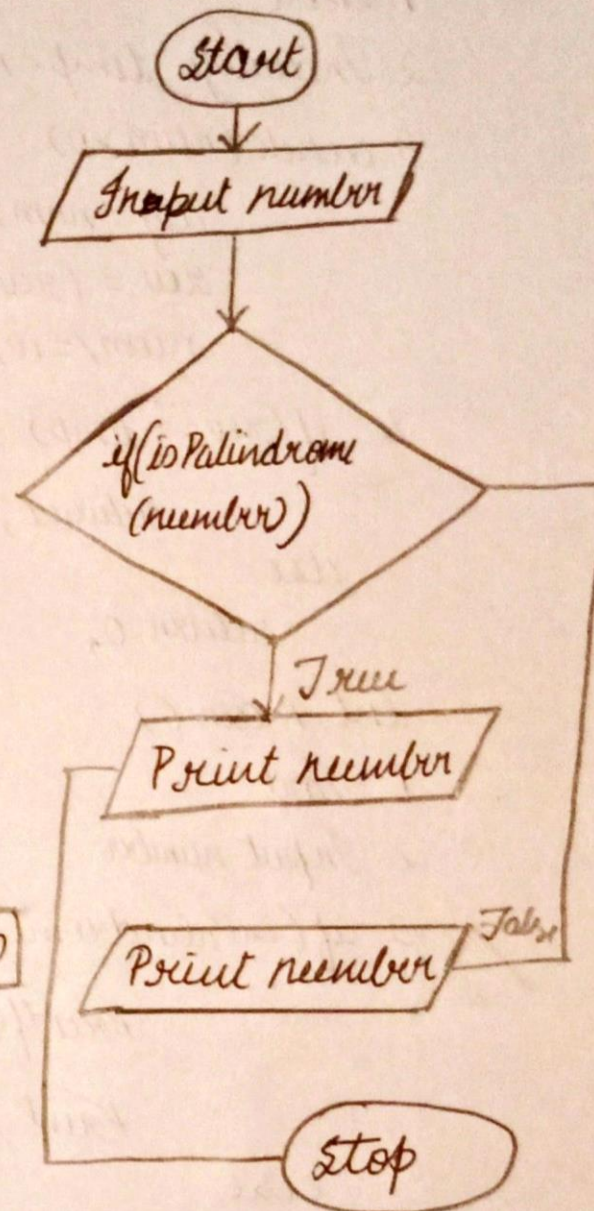 Start
Input number
if(isPalindrome
(number))
True
Print number
Print number
False
Stop